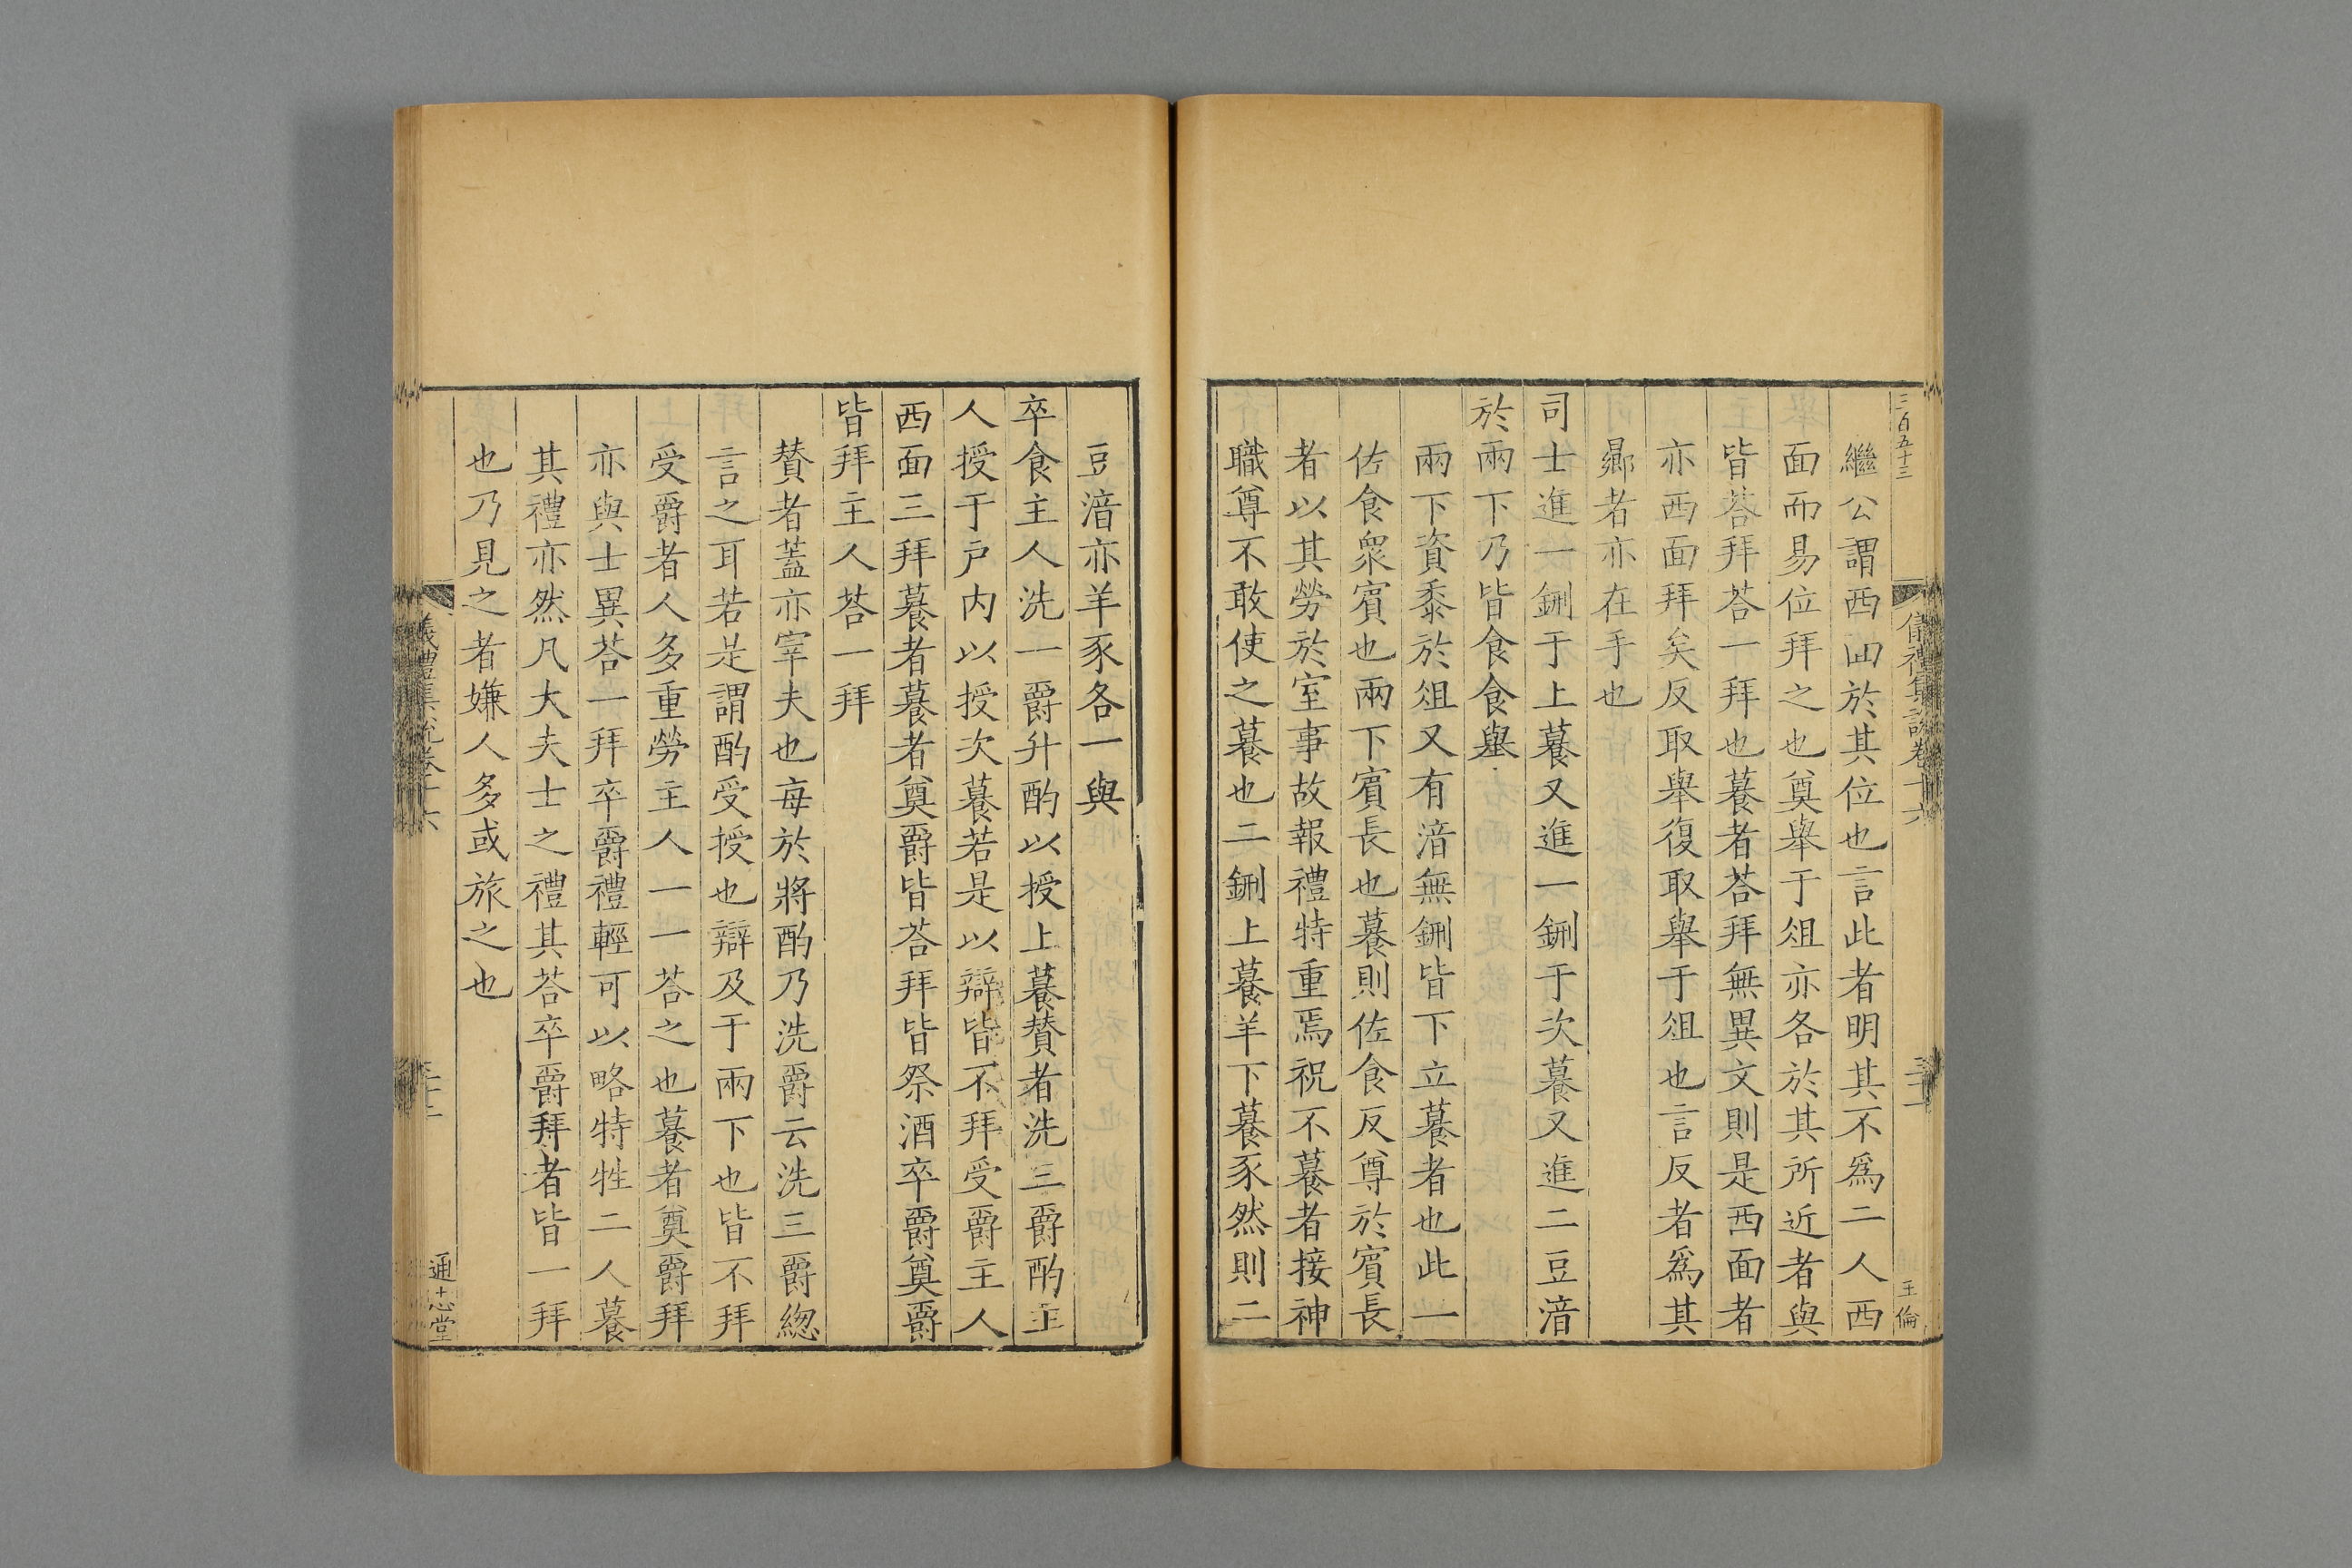 三百五十三
儀禮集說卷十六
王倫
繼公謂西面於其位也言此者明其不爲二人西
面而易位拜之也奠舉于俎亦各於其所近者與
皆荅拜荅一拜也䭕者荅拜無異文則是西面者
亦西面拜矣反取舉復取舉于俎也言反者爲其
曏者亦在手也
司士進一鉶于上䭕又進一鉶于次䭕又進二豆湆
於兩下乃皆食食舉
兩下資黍於俎又有湆無鉶皆下立䭕者也此一
佐食衆賔也兩下賔長也䭕則佐食反尊於賔長
者以其勞於室事故報禮特重焉祝不䭕者接神
職尊不敢使之䭕也二鉶上䭕羊下䭕豕然則二
豆湆亦羊豕各一與
卒食主人洗一爵升酌以授上䭕贊者洗三爵酌主
人授于戸内以授次䭕若是以辯皆不拜受爵主人
西面三拜䭕者䭕者奠爵皆荅拜皆祭酒卒爵奠爵
皆拜主人荅一拜
贊者蓋亦宰夫也毎於將酌乃洗爵云洗三爵緫
言之耳若是謂酌受授也辯及于兩下也皆不拜
受爵者人多重勞主人一一荅之也䭕者奠爵拜
亦與士異荅一拜卒爵禮輕可以略特牲二人䭕
其禮亦然凡大夫士之禮其荅卒爵拜者皆一拜
也乃見之者嫌人多或旅之也
儀禮集說卷十六
通志堂